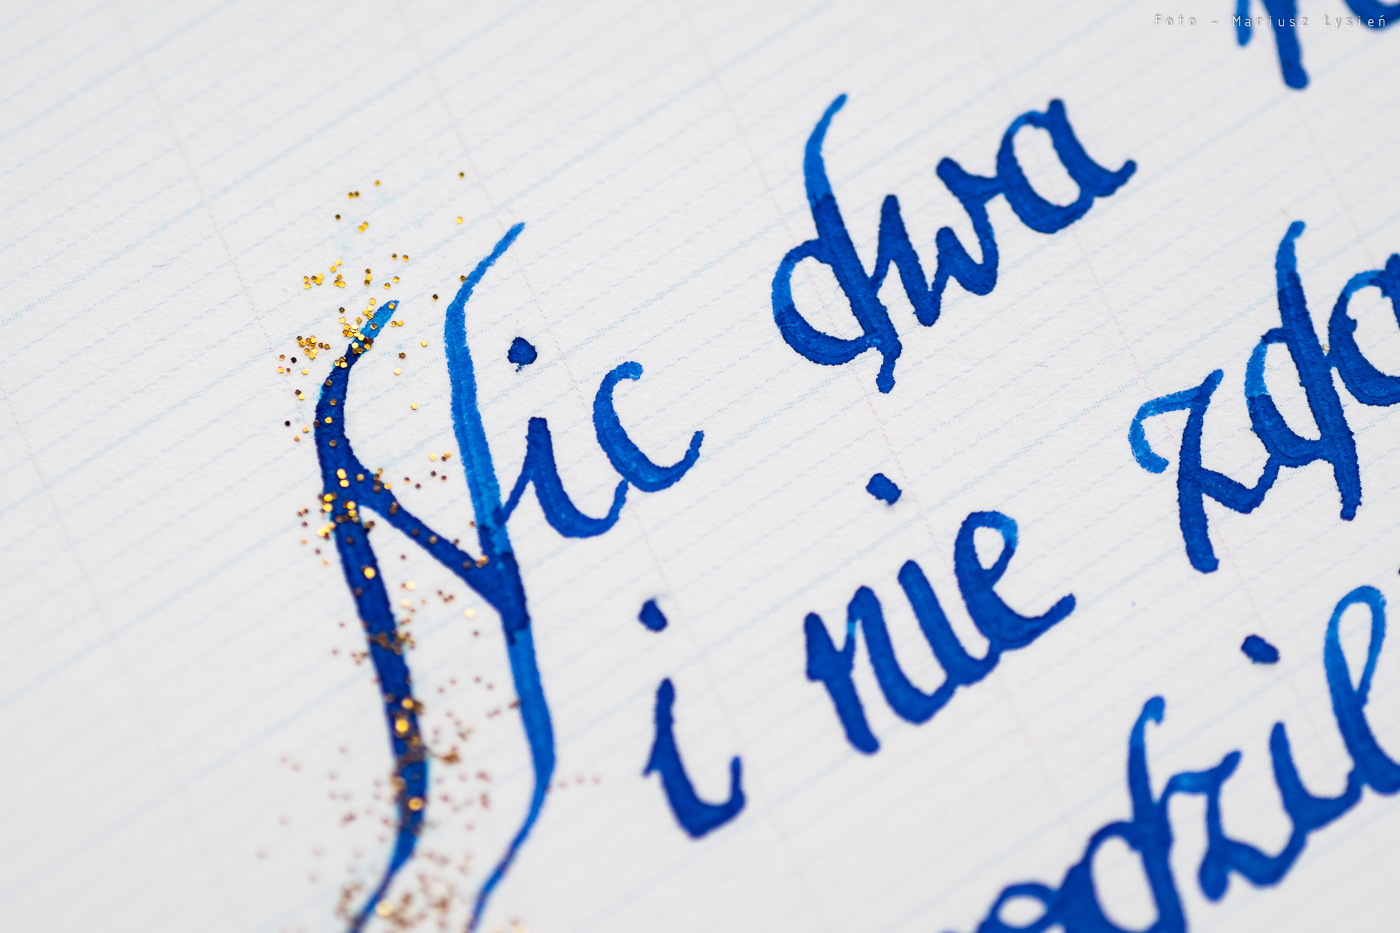 Foto - Mariusz Łysień
Nic dwa
i nie zda
odzil